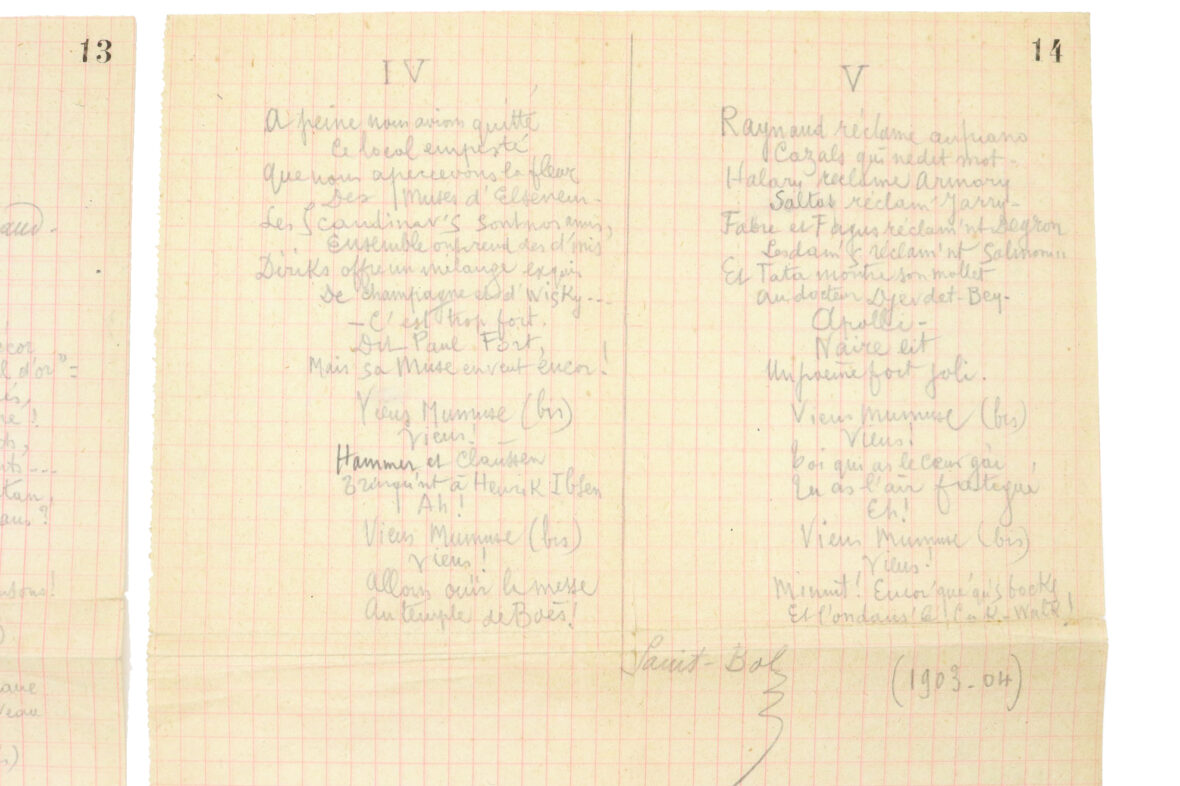 13
aud.
cor
l d'or" =
és,
re !
ts ---
tan,
ans ?
sons !
ane
eau
14
IV
A peine nous avions quitté
Ce local empesté
Que nous apercevons la fleur
Des Muses d'Elseneur -
Les Scandinav's sont nos amis,
Ensemble on prend des d'mis
Diriks offre un mélange exquis
De champagne et d'Wisky ---
- C'est trop fort.
Dit Paul Fort,
Mais sa Muse en veut encor !
Viens Mumuse (bis)
Viens !
Hammer et Claussen
Trinqu'nt à Henrik Ibsen
Ah !
Viens Mumuse (bis)
Viens !
Allons ouïr la messe
Au temple de Boës !
V
Raynaud réclame au piano
Cazals qui ne dit mot -
Halary réclame Armory
Saltas réclam' Jarry -
Fabre et Fagus réclam'nt Degron
Les dam's réclam'nt Salmon
Et Tata montre son mollet
Au docteur Djevdet-Bey -
Apolli -
Naire lit
Un poème fort joli.
Viens Mumuse (bis)
Viens !
Toi qui as le cœur gai
Tu as l'air fatigué
Eh !
Viens Mumuse (bis)
Viens !
Minuit ! Encor' quéqu's bocks,
Et l'on dans' le Cak'-Walk !
Saint-Bol
(1903-04)